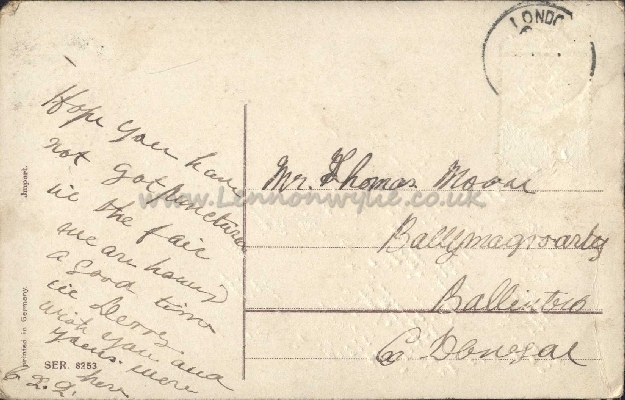 LONDO
Hope you have
not got punctured
in the fair
we are having
a good time
in Derry
wish you and
yours were
here
Mr. Thomas Moore
Ballymagroarty
Ballintra
Co Donegal
www.Lennonwylie.co.uk
Printed in Germany. Import.
SER. 8253